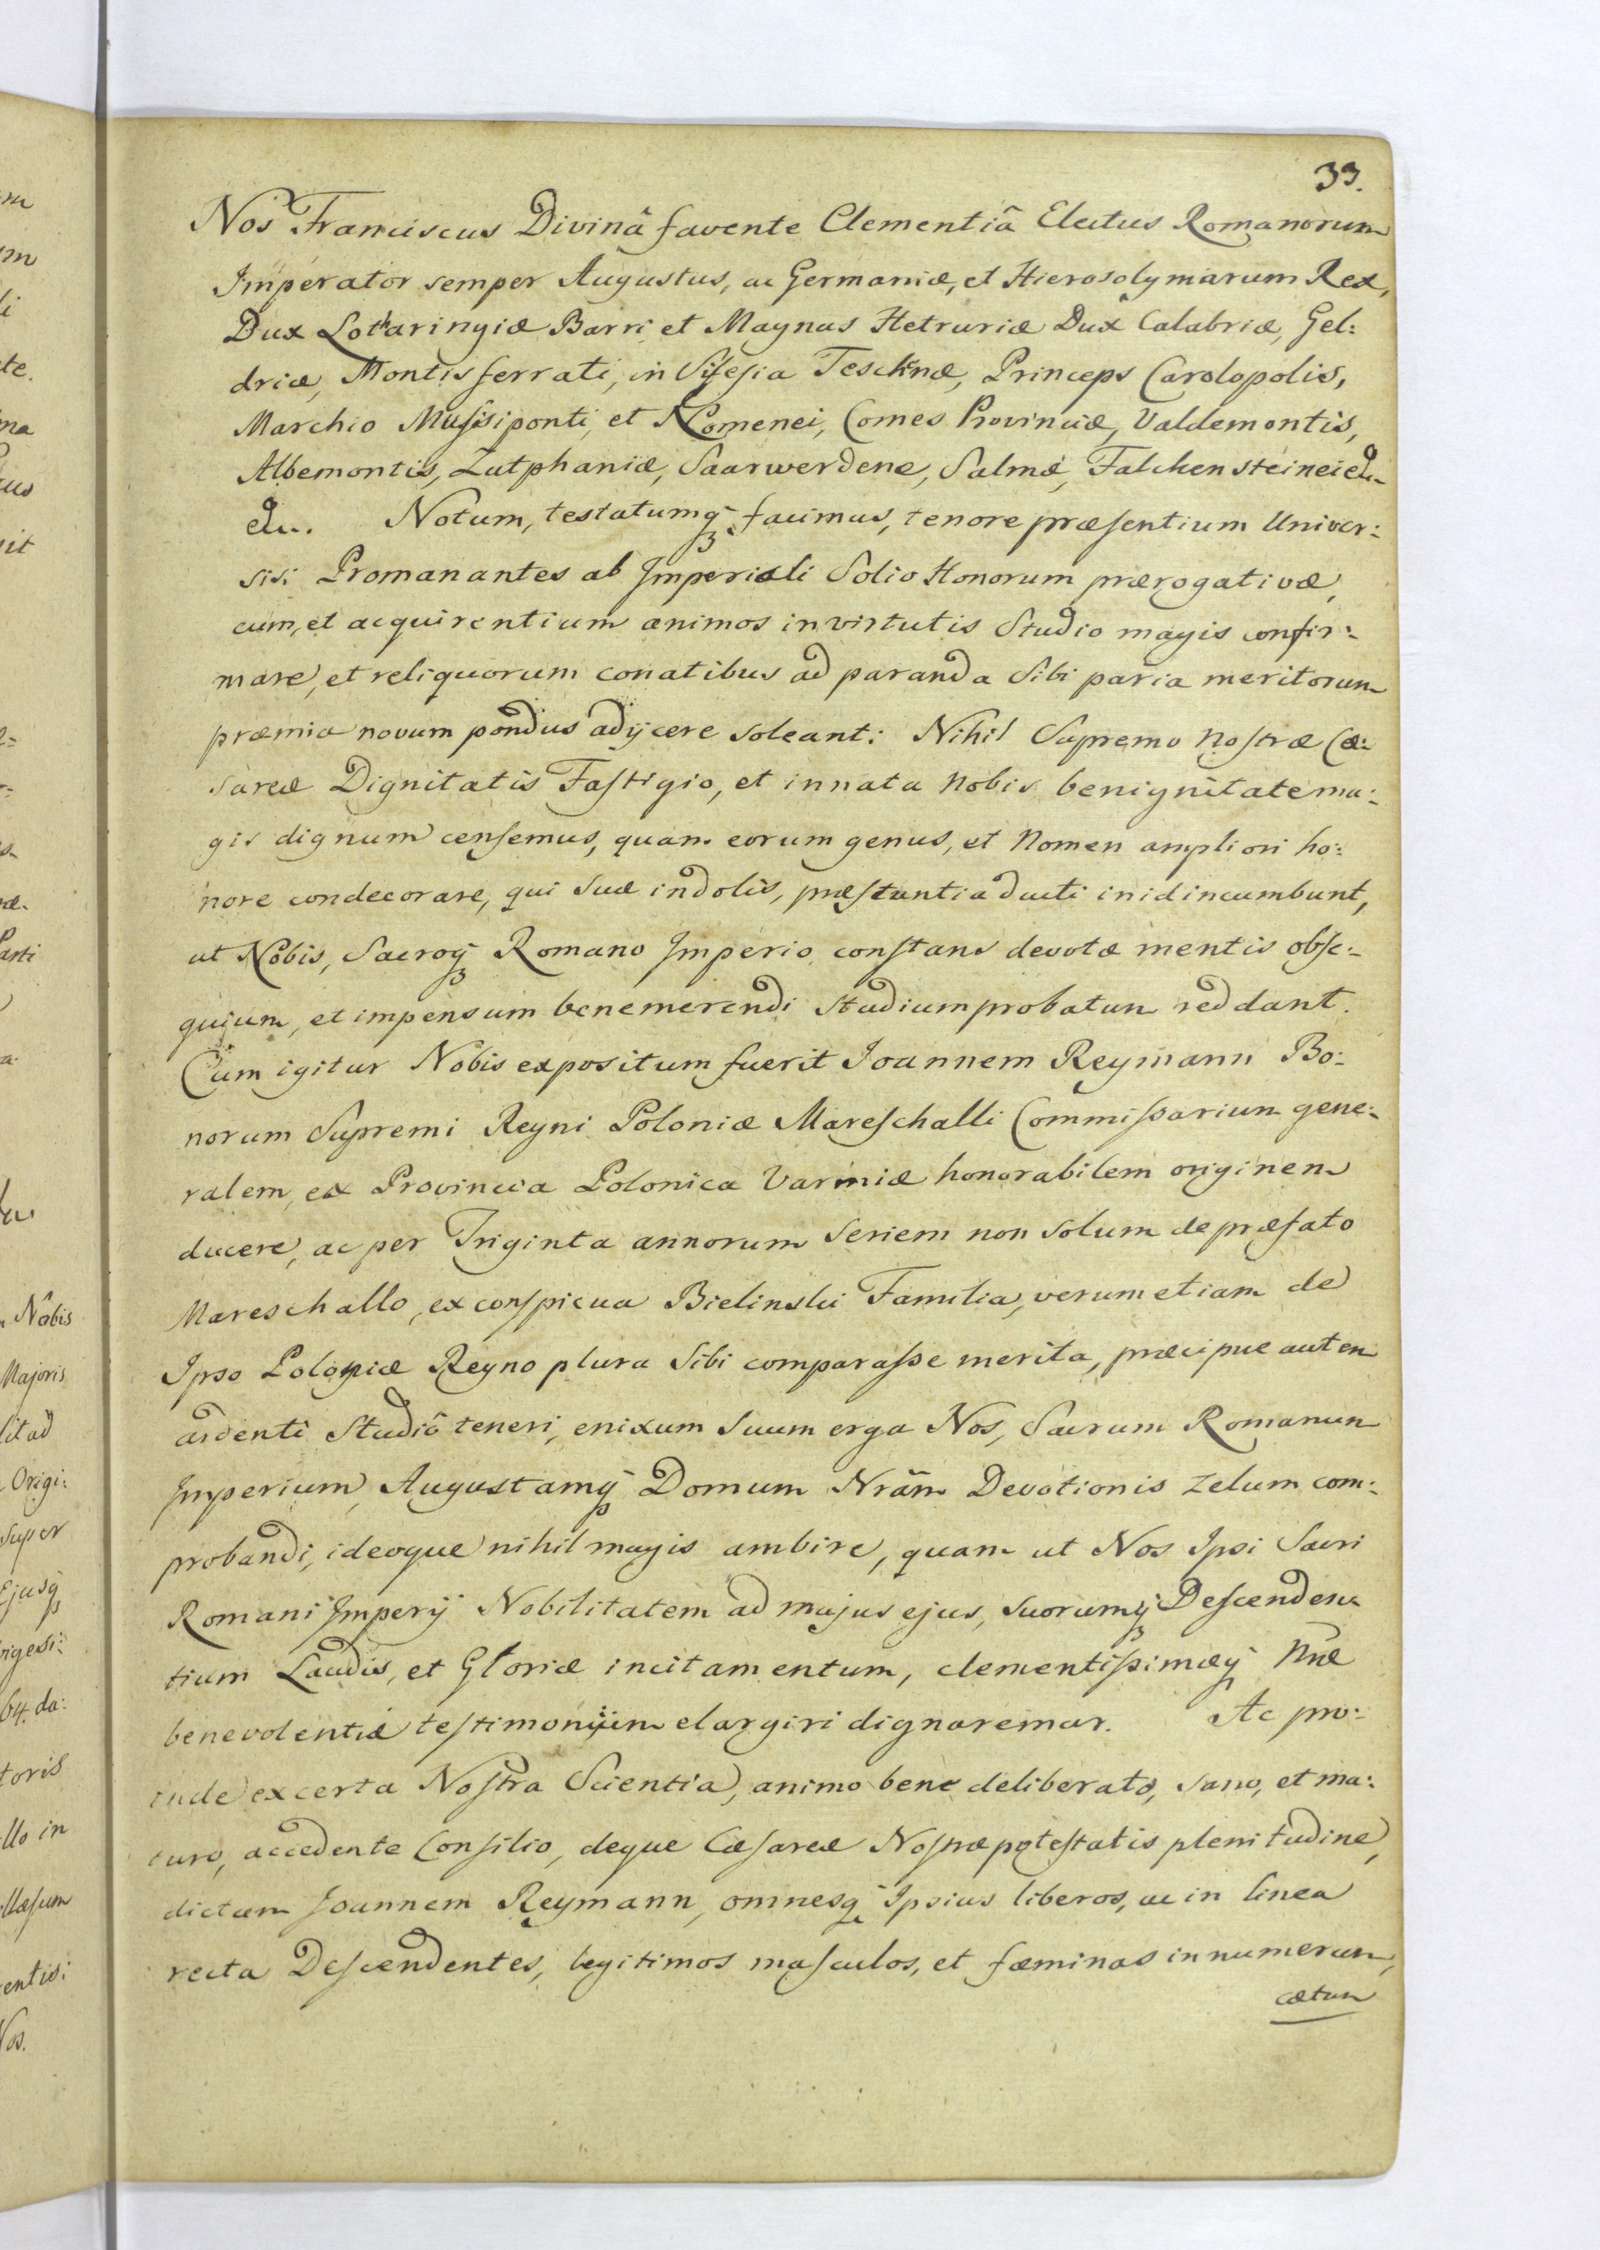 33.
Nos Franciscus Divinâ favente Clementiâ Electus Romanorum
Imperator semper Augustus, ac Germaniæ, et Hierosolymarum Rex,
Dux Lotharingiæ Barri, et Magnus Hetruriæ Dux Calabriæ, Gel:
driæ, Montisferrati, in Silesia Teschnæ, Princeps Carolopolis,
Marchio Mussiponti, et Nomenei, Comes Provinciæ, Valdemontis,
Albemontis, Zutphaniæ, Saarwerdenæ, Salmæ, Falckensteinei etc.
etc. Notum, testatumq facimus, tenore præsentium Univer:
sis: Promanantes ab Imperiali Solio Honorum prærogativæ,
cum, et acquirentium animos in virtutis Studio magis confir:
mare, et reliquorum conatibus ad paranda Sibi paria meritorum
præmia novum pondus adijcere soleant: Nihil Supremo nostræ Cæ:
sareæ Dignitatis Fastigio, et innata Nobis benignitate ma:
gis dignum censemus, quam eorum genus, et Nomen ampliori ho:
nore condecorare, qui suæ indolis, præstantia ducti in id incumbunt,
ut Nobis, Sacroq Romano Imperio constans devotæ mentis obse:
quium, et impensum benemerendi studium probatum reddant.
Cum igitur Nobis expositum fuerit Joannem Reymann Bo:
norum Supremi Regni Poloniæ Mareschalli Commissarium gene:
ralem, ex Provincia Polonica Varmiæ honorabilem originem
ducere, ac per Triginta annorum Seriem non solum de præfato
Mareschallo, ex conspicua Bielinski Familia, verum etiam de
Ipso Poloniæ Regno plura Sibi comparasse merita, præcipue autem
ardenti Studiô teneri, enixum suum erga Nos, Sacrum Romanum
Imperium, Augustamq Domum Nram Devotionis zelum com:
probandi, ideoque nihil magis ambire, quam ut Nos Ipsi Sacri
Romani Imperij Nobilitatem ad majus ejus, suorumq Descenden:
tium Laudis, et Gloriæ incitamentum, clementissimæq Nræ
benevolentiæ testimonium elargiri dignaremur. Ac pro:
inde ex certa Nostra Scientia, animo bene deliberato, sano, et ma:
turo, accedente Consilio, deque Cæsareæ Nostræ potestatis plenitudine,
dictum Joannem Reymann, omnesq Ipsius liberos, ac in linea
recta Descendentes, legitimos masculos, et fæminas in numerum,
cætum